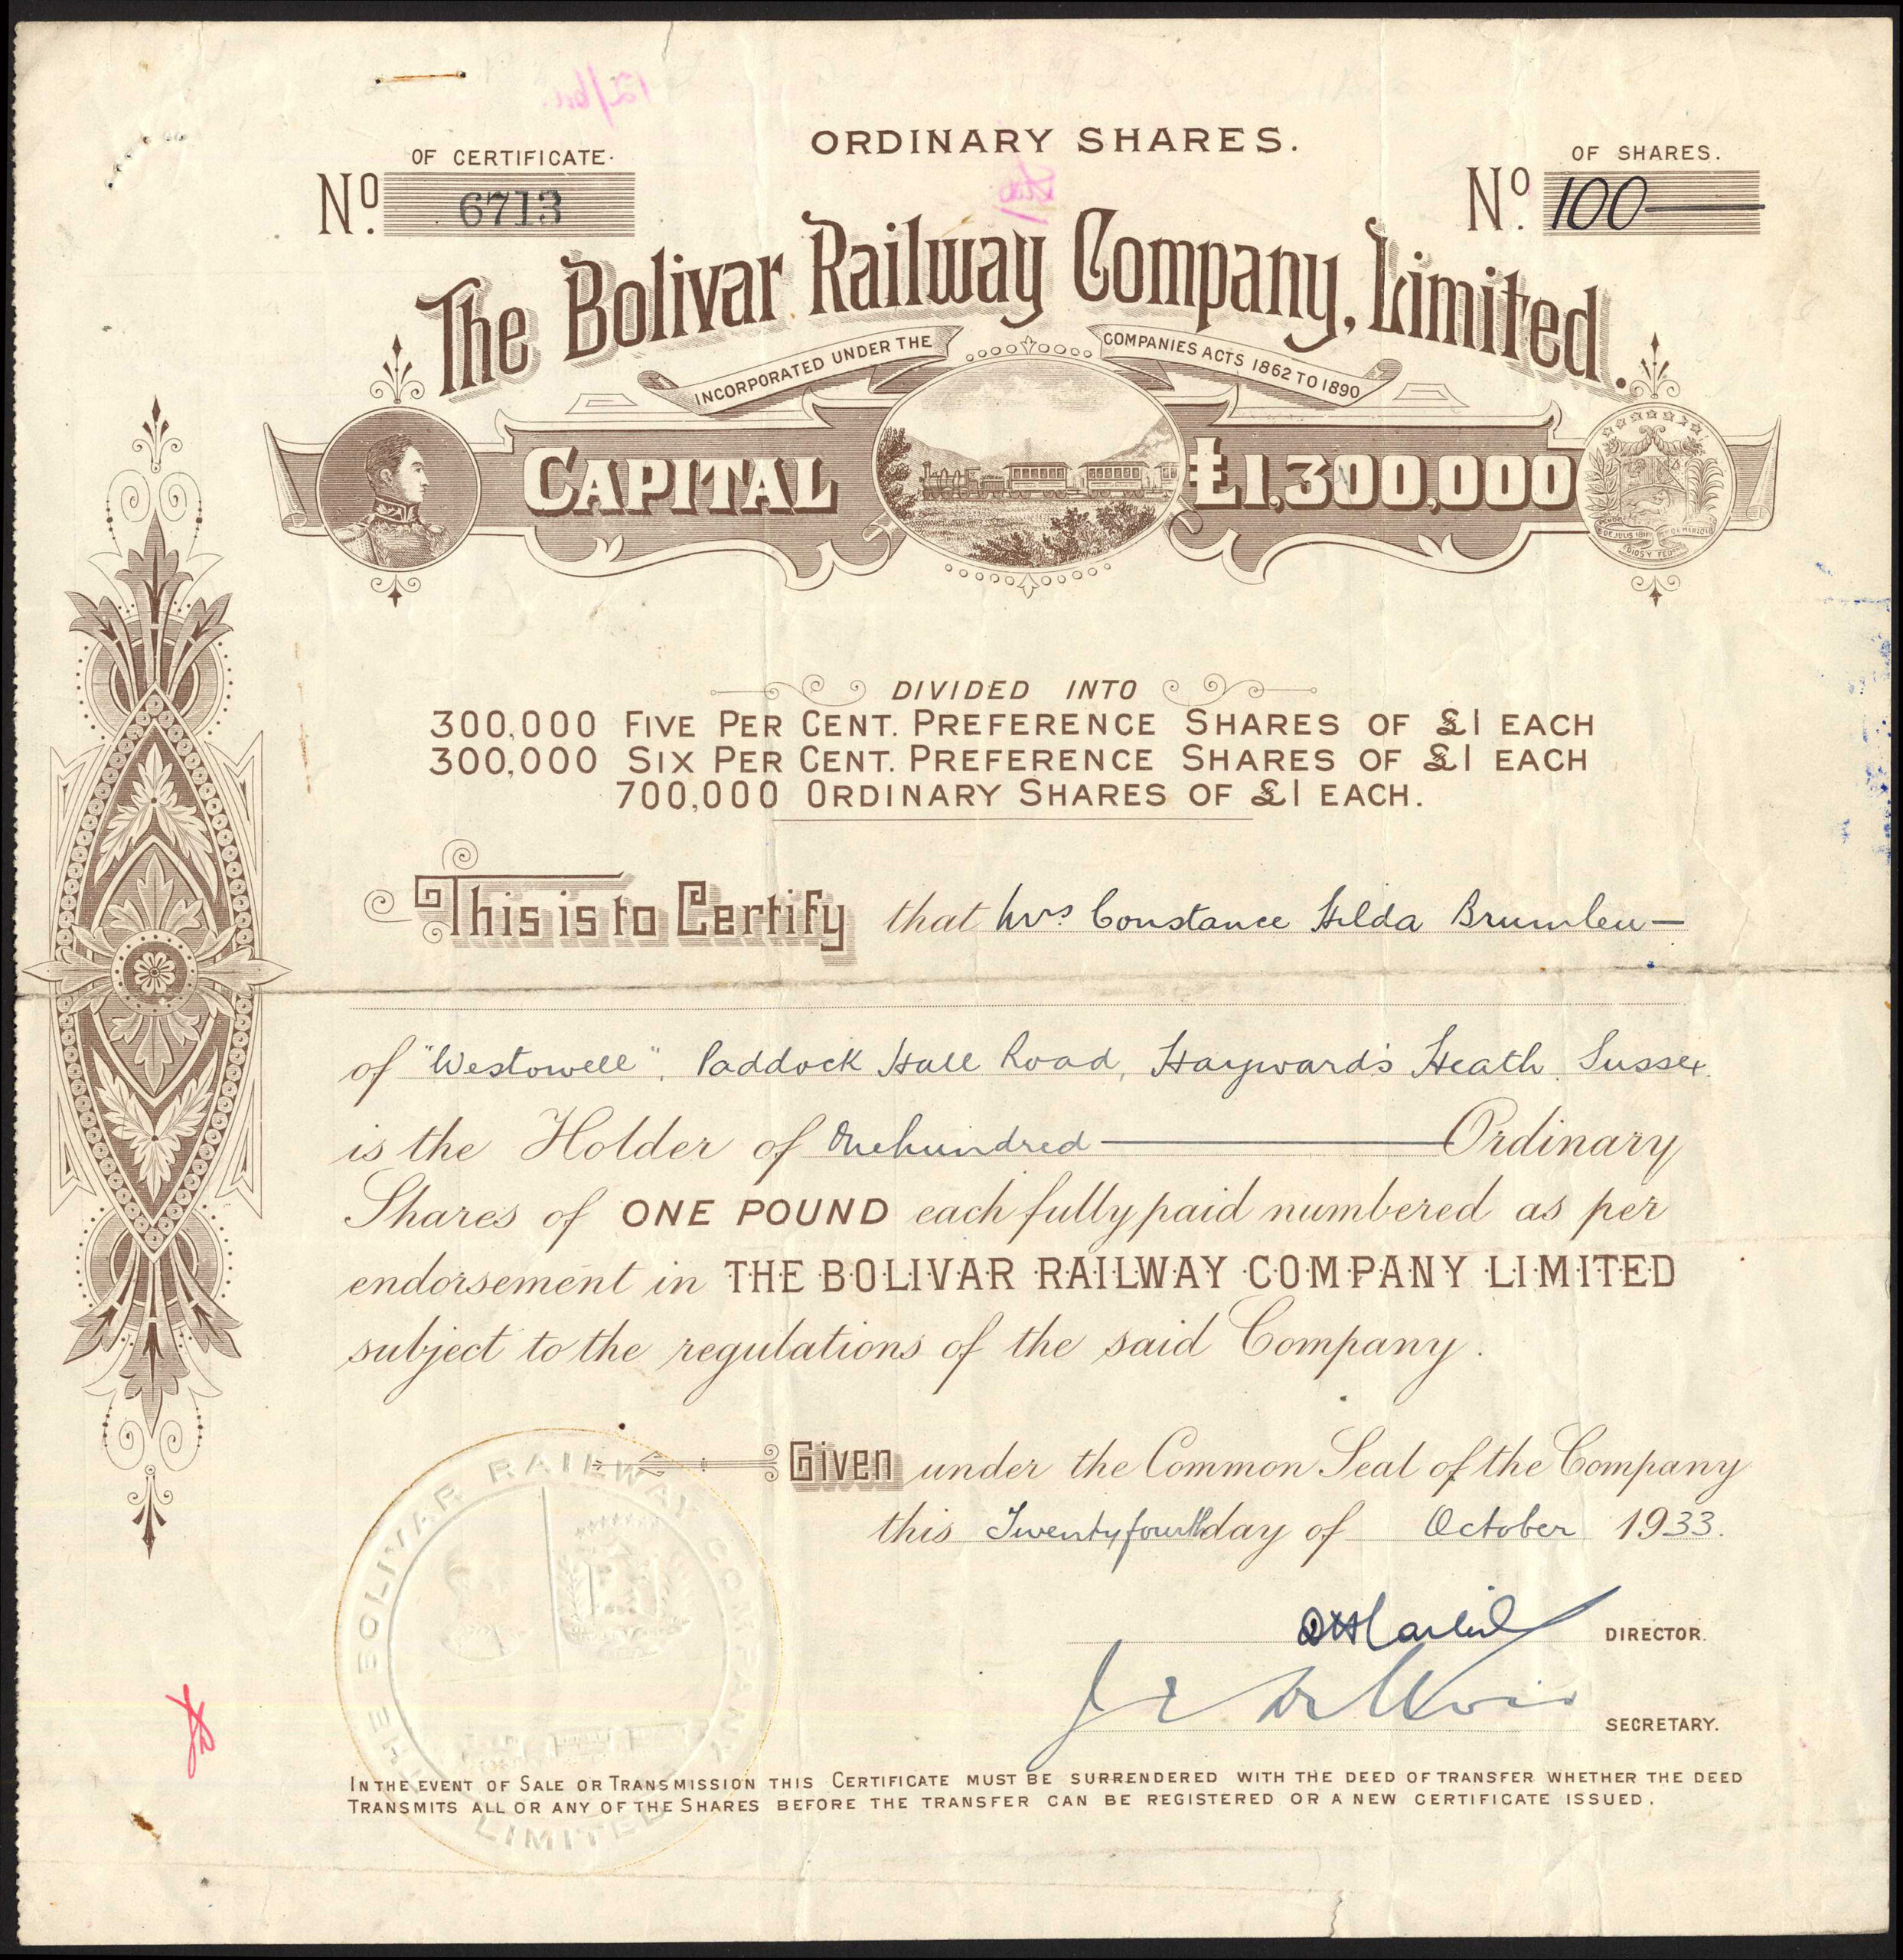 ORDINARY SHARES.
OF CERTIFICATE.
No. 6713
OF SHARES.
No. 100
The Bolivar Railway Company, Limited.
INCORPORATED UNDER THE COMPANIES ACTS 1862 TO 1890
CAPITAL £1,300,000
DIOS Y FED
DIVIDED INTO
300,000 FIVE PER CENT. PREFERENCE SHARES OF £1 EACH
300,000 SIX PER CENT. PREFERENCE SHARES OF £1 EACH
700,000 ORDINARY SHARES OF £1 EACH.
This is to Certify that Mrs. Constance Hilda Brumleu
of "Westowell", Paddock Hall Road, Hayward's Heath. Sussex.
is the Holder of One hundred Ordinary
Shares of ONE POUND each fully paid numbered as per
endorsement in THE BOLIVAR RAILWAY COMPANY LIMITED
subject to the regulations of the said Company.
Given under the Common Seal of the Company
this Twenty fourth day of October 1933.
DIRECTOR.
SECRETARY.
THE BOLIVAR RAILWAY COMPANY LIMITED
IN THE EVENT OF SALE OR TRANSMISSION THIS CERTIFICATE MUST BE SURRENDERED WITH THE DEED OF TRANSFER WHETHER THE DEED
TRANSMITS ALL OR ANY OF THE SHARES BEFORE THE TRANSFER CAN BE REGISTERED OR A NEW CERTIFICATE ISSUED.